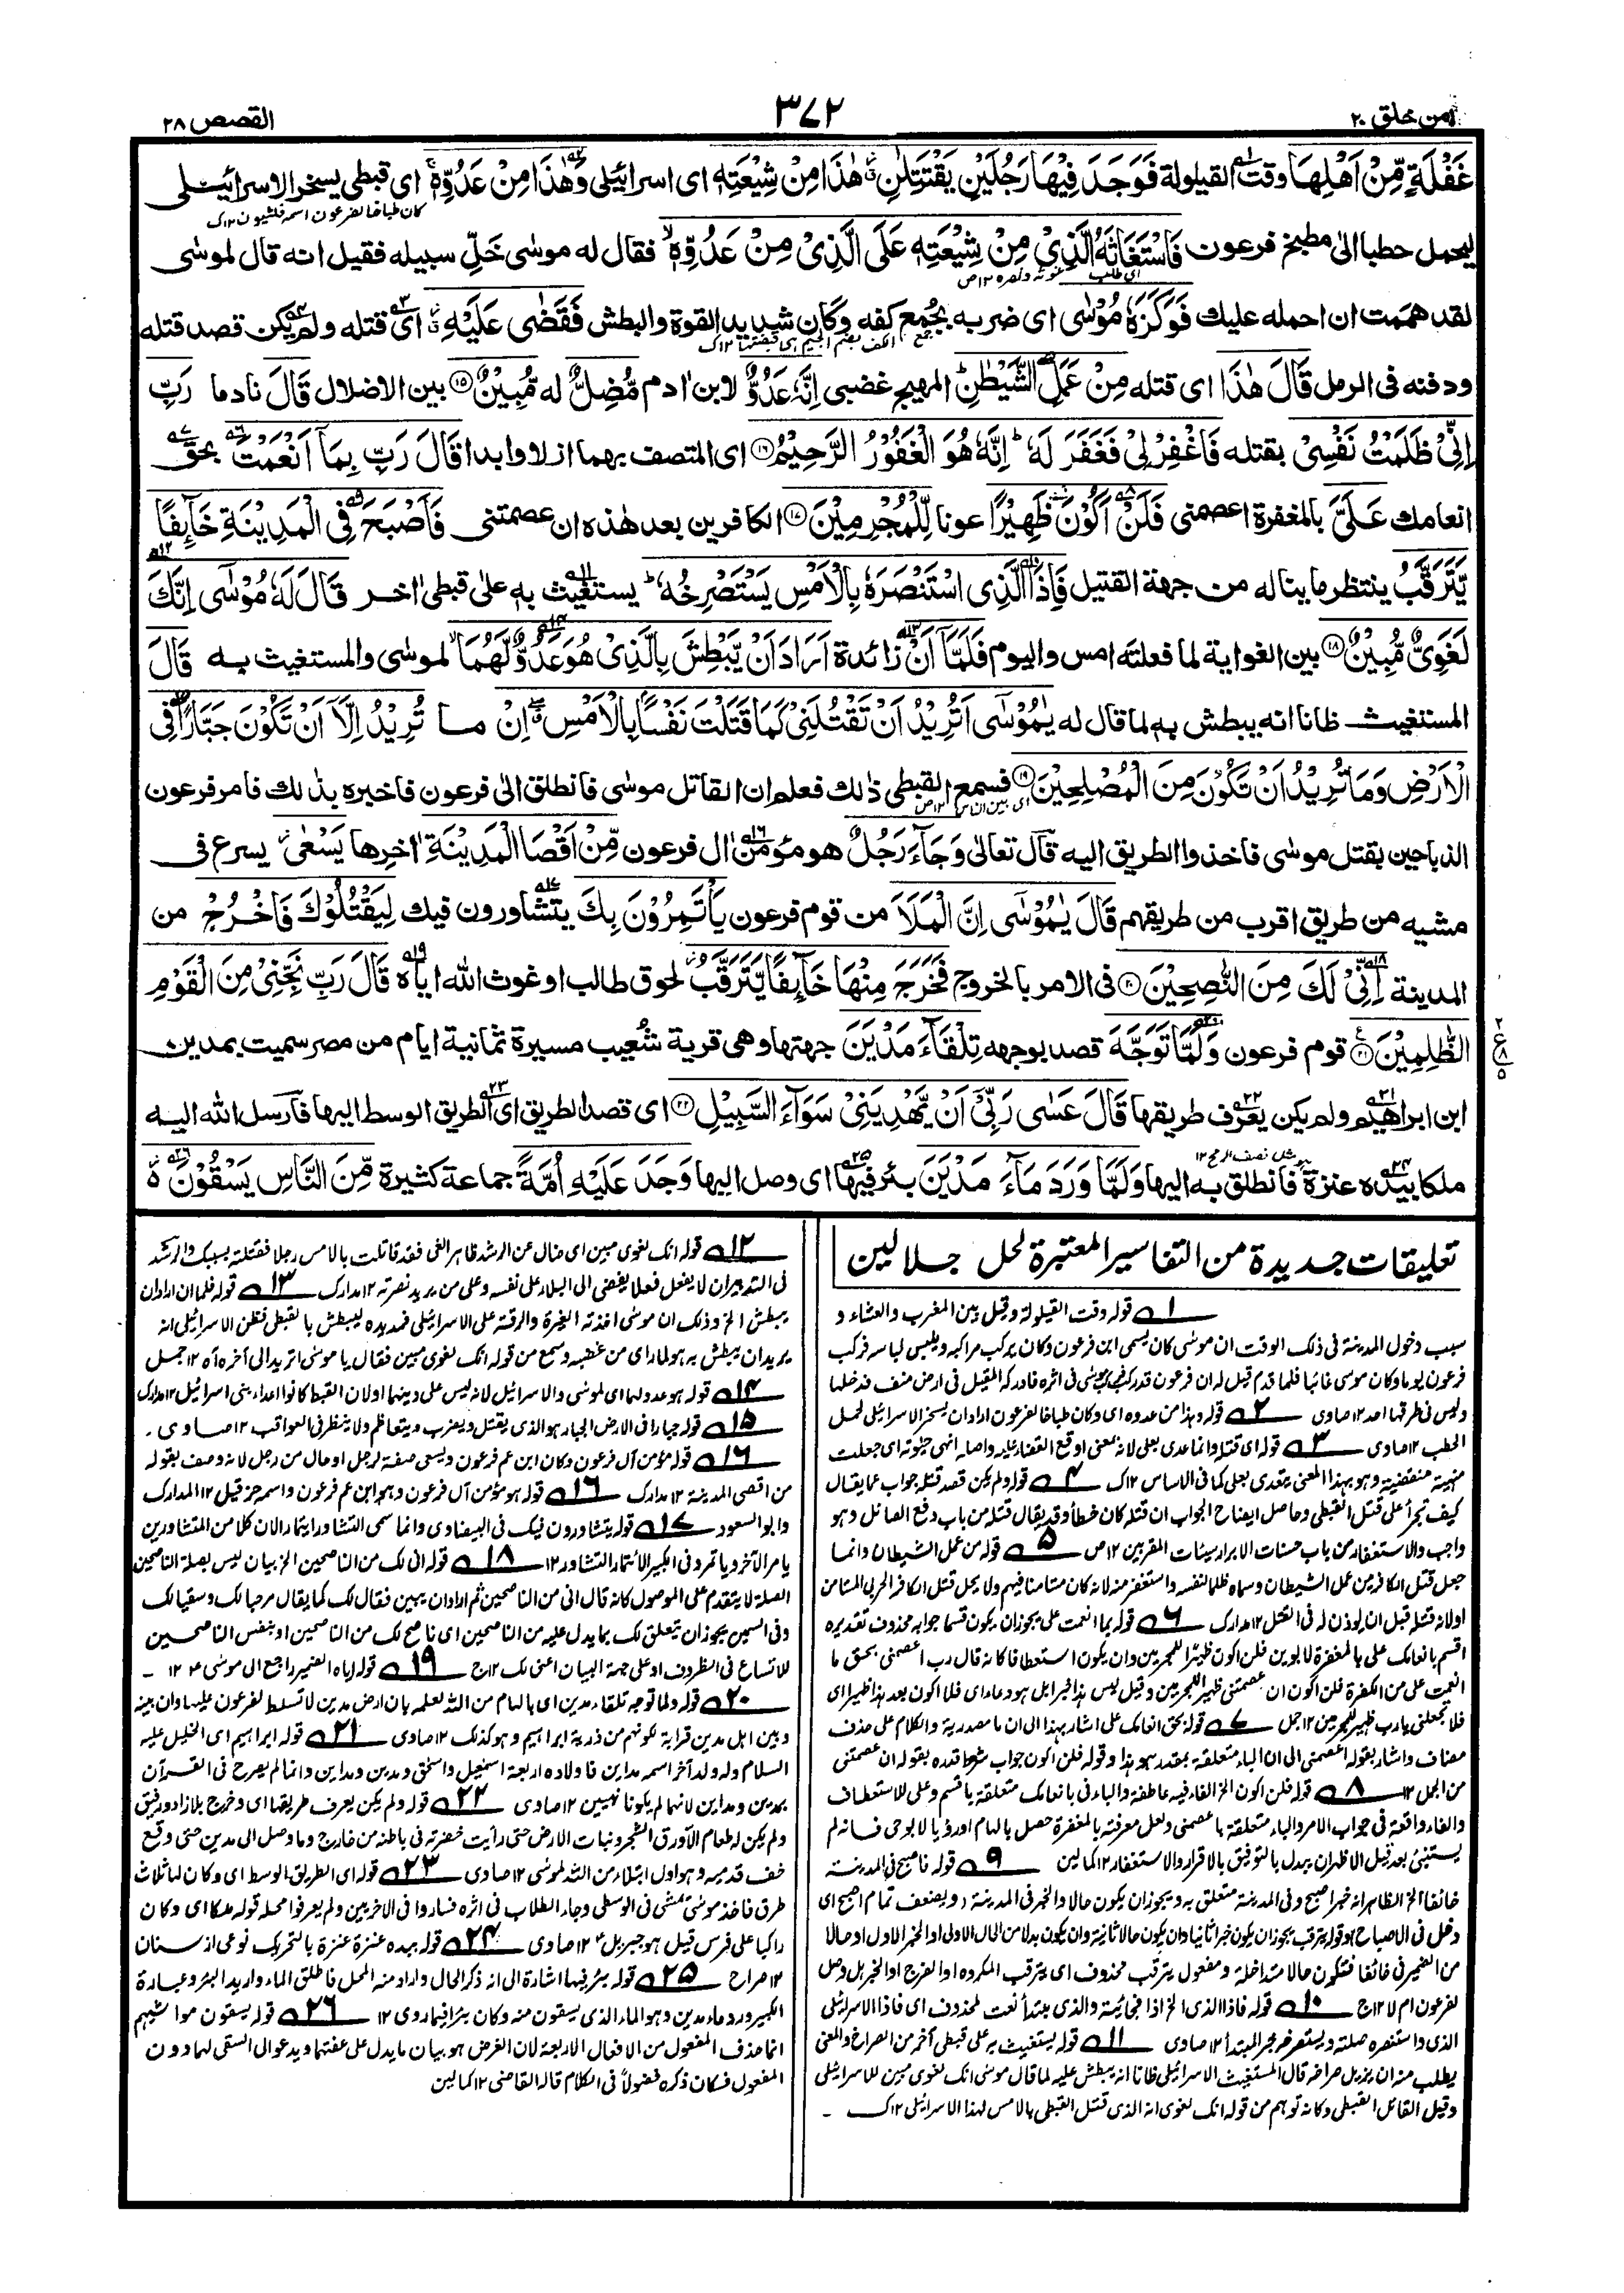 امن خلق ٢٠
٣٧٢
القصص ٢٨
غَفْلَةٍ مِّنْ اَهْلِهَا وقت القيلولة فَوَجَدَ فِيْهَا رَجُلَيْنِ يَقْتَتِلٰنِ هٰذَا مِنْ شِيْعَتِهٖ اى اسرائيلى وَهٰذَا مِنْ عَدُوِّهٖ اى قبطى يسخر الاسرائيلى
كان طباخا لفرعون اسمه فلثيون ١٢ك
ليحمل حطبا الىٰ مطبخ فرعون فَاسْتَغَاثَهُ الَّذِيْ مِنْ شِيْعَتِهٖ عَلَى الَّذِيْ مِنْ عَدُوِّهٖ فقال له موسٰى خَلِّ سبيله فقيل انه قال لموسٰى
اى طلب غوثه ونصره ١٢ص
لقد هممت ان احمله عليك فَوَكَزَهٗ مُوْسٰى اى ضربه بجُمع كفه وكان شديد القوة والبطش فَقَضٰى عَلَيْهِ اى قتله ولم يكن قصد قتله
جمع الكف بضم الجيم اى قبضتها ١٢ك
ودفنه فى الرمل قَالَ هٰذَا اى قتله مِنْ عَمَلِ الشَّيْطٰنِ المهيج غضبى اِنَّهٗ عَدُوٌّ لابن اٰدم مُّضِلٌّ له مُّبِيْنٌ ١٥ بين الاضلال قَالَ نادما رَبِّ
اِنِّيْ ظَلَمْتُ نَفْسِيْ بقتله فَاغْفِرْ لِيْ فَغَفَرَ لَهٗ اِنَّهٗ هُوَ الْغَفُوْرُ الرَّحِيْمُ ١٦ اى المتصف بهما ازلا وابدا قَالَ رَبِّ بِمَا اَنْعَمْتَ بحق
انعامك عَلَيَّ بالمغفرة اعصمنى فَلَنْ اَكُوْنَ ظَهِيْرًا عونا لِّلْمُجْرِمِيْنَ ١٧ الكافرين بعد هٰذه ان عصمتنى فَاَصْبَحَ فِي الْمَدِيْنَةِ خَآئِفًا
يَّتَرَقَّبُ ينتظر ما يناله من جهة القتيل فَاِذَا الَّذِي اسْتَنْصَرَهٗ بِالْاَمْسِ يَسْتَصْرِخُهٗ يستغيث به علىٰ قبطى اٰخر قَالَ لَهٗ مُوْسٰٓى اِنَّكَ
لَغَوِيٌّ مُّبِيْنٌ ١٨ بين الغواية لما فعلته امس واليوم فَلَمَّآ اَنْ زائدة اَرَادَ اَنْ يَّبْطِشَ بِالَّذِيْ هُوَ عَدُوٌّ لَّهُمَا لموسٰى والمستغيث به قَالَ
المستغيث ظانا انه يبطش به لما قال له يٰمُوْسٰٓى اَتُرِيْدُ اَنْ تَقْتُلَنِيْ كَمَا قَتَلْتَ نَفْسًا بِالْاَمْسِ اِنْ ما تُرِيْدُ اِلَّآ اَنْ تَكُوْنَ جَبَّارًا فِي
الْاَرْضِ وَمَا تُرِيْدُ اَنْ تَكُوْنَ مِنَ الْمُصْلِحِيْنَ ١٩ فسمع القبطى ذٰلك فعلم ان القاتل موسٰى فانطلق الىٰ فرعون فاخبره بذٰلك فامر فرعون
اى بين الناس ١٢ص
الذباحين بقتل موسٰى فاخذوا الطريق اليه قال تعالىٰ وَجَآءَ رَجُلٌ هو مؤمن اٰل فرعون مِّنْ اَقْصَا الْمَدِيْنَةِ اٰخرها يَسْعٰى يسرع فى
مشيه من طريق اقرب من طريقهم قَالَ يٰمُوْسٰٓى اِنَّ الْمَلَاَ من قوم فرعون يَأْتَمِرُوْنَ بِكَ يتشاورون فيك لِيَقْتُلُوْكَ فَاخْرُجْ من
المدينة اِنِّيْ لَكَ مِنَ النّٰصِحِيْنَ ٢٠ فى الامر بالخروج فَخَرَجَ مِنْهَا خَآئِفًا يَّتَرَقَّبُ لحوق طالب او غوث الله اياه قَالَ رَبِّ نَجِّنِيْ مِنَ الْقَوْمِ
الظّٰلِمِيْنَ ٢١ قوم فرعون وَلَمَّا تَوَجَّهَ قصد بوجهه تِلْقَآءَ مَدْيَنَ جهتها وهى قرية شعيب مسيرة ثمانية ايام من مصر سميت بمدين
ابن ابراهيم ولم يكن يعرف طريقها قَالَ عَسٰى رَبِّيْٓ اَنْ يَّهْدِيَنِيْ سَوَآءَ السَّبِيْلِ ٢٢ اى قصد الطريق اى الطريق الوسط اليها فارسل الله اليه
ملكا بيده عنزة فانطلق به اليها وَلَمَّا وَرَدَ مَآءَ مَدْيَنَ بئر فيها اى وصل اليها وَجَدَ عَلَيْهِ اُمَّةً جماعة كثيرة مِّنَ النَّاسِ يَسْقُوْنَ
تعليقات جديدة من التفاسير المعتبرة لحل جلالين
١ قوله وقت القيلولة وقيل بين المغرب والعشاء و
سبب دخول المدينة فى ذلك الوقت ان موسى كان يسمى ابن فرعون وكان يركب مراكبه ويلبس لباسه فركب
فرعون يوما وكان موسى غائبا فلما قدم قيل له ان فرعون قد ركب فركب موسى فى اثره فادركه المقيل فى ارض منف فدخلها
وليس فى طرقها احد ١٢ صاوى ٢ قوله وهذا من عدوه اى وكان طباخا لفرعون اراد ان يسخر الاسرائيلى لحمل
الحطب ١٢ صاوى ٣ قوله اى قتله وانما عدى بعلى لانه بمعنى اوقع القضاء عليه واصله انهى حيوته اى جعلت
منهية منقضية وهو بهذا المعنى يتعدى بعلى كما فى الاساس ١٢ك ٤ قوله ولم يكن قصد قتله جواب عما يقال
كيف تجرأ على قتل القبطى وحاصل ايضاح الجواب ان قتله كان خطأ وقد يقال قتله من باب دفع الصائل وهو
واجب والاستغفار من باب حسنات الابرار سيئات المقربين ١٢ص ٥ قوله من عمل الشيطان وانما
جعل قتل الكافر من عمل الشيطان وسماه ظلما لنفسه واستغفر منه لانه كان مستامنا فيهم ولا يحل قتل الكافر الحربى المستامن
اولانه قتله قبل ان يؤذن له فى القتل ١٢ مدارك ٦ قوله بما انعمت على يجوز ان يكون قسما جوابه محذوف تقديره
اقسم بانعامك على بالمغفرة لاتوبن فلن اكون ظهيرا للمجرمين وان يكون استعطافا كانه قال رب اعصمنى بحق ما
انعمت على من المغفرة فلن اكون ان عصمتنى ظهيرا للمجرمين وقيل ليس هذا خبرا بل هو دعاء اى فلا اكون بعد هذا ظهيرا اى
فلا تجعلنى يا رب ظهيرا للمجرمين ١٢ جمل ٧ قوله بحق انعامك على اشار بهذا الى ان ما مصدرية والكلام على حذف
مضاف واشار بقوله اعصمنى الى ان الباء متعلقة بمقدر هو هذا وقوله فلن اكون جواب شرط قدره بقوله ان عصمتنى
من الجمل ١٢ ٨ قوله فلن اكون الخ الفاء فيه عاطفة والباء فى بانعامك متعلقة باقسم وعلى الاستعطاف
والفاء واقعة فى جواب الامر والباء متعلقة باعصمنى ولعل معرفته بالمغفرة حصل بالهام او رؤيا لا بوحى فانه لم
يستنبئ بعد قيل الاظهر ان يبدل بالتوفيق بالاقرار والاستغفار ١٢ كمالين ٩ قوله فاصبح فى المدينة
خائفا الخ الظاهر انه خبر اصبح وفى المدينة متعلق به ويجوز ان يكون حالا والخبر فى المدينة ويضعف تمام اصبح اى
دخل فى الاصباح وقوله يترقب يجوز ان يكون خبرا ثانيا وان يكون حالا ثانية وان يكون بدلا من الحال الاولى او الخبر الاول او حالا
من الضمير فى خائفا فتكون حالا متداخلة ومفعول يترقب محذوف اى يترقب المكروه او الفرج او الخبر هل وصل
لفرعون ام لا ١٢ج ١٠ قوله فاذا الذى الخ اذا فجائية والذى مبتدأ نعت لمحذوف اى فاذا الاسرائيلى
الذى واستنصره صلته ويستصرخه خبر المبتدأ ١٢ صاوى ١١ قوله يستغيث به على قبطى آخر من الصراخ والمعنى
يطلب منه ان يزيل صراخه قال المستغيث الاسرائيلى ظانا انه يبطش عليه لما قال موسى انك لغوى مبين للاسرائيلى
وقيل القائل القبطى وكانه توهم من قوله انك لغوى انه الذى قتل القبطى بالامس لهذا الاسرائيلى ١٢ك
١٢ قوله انك لغوى مبين اى ضال عن الرشد ظاهر الغى فقد قاتلت بالامس رجلا فقتلته بسببك والرشد
فى التدبير ان لا يفعل فعلا يفضى الى البلاء على نفسه وعلى من يريد نصرته ١٢ مدارك ١٣ قوله فلما ان اراد ان
يبطش الخ وذلك ان موسى اخذته الغيرة والرقة على الاسرائيلى فمد يده ليبطش بالقبطى فظن الاسرائيلى انه
يريد ان يبطش به لما راى من غضبه وسمع من قوله انك لغوى مبين فقال يا موسى اتريد الى آخره اه ١٢ جمل
١٤ قوله هو عدو لهما اى لموسى والاسرائيلى لانه ليس على دينهما اولان القبط كانوا اعداء بنى اسرائيل ١٢ مدارك
١٥ قوله جبارا فى الارض الجبار هو الذى يقتل ويضرب ويتعاظم ولا ينظر فى العواقب ١٢ صاوى
١٦ قوله مؤمن آل فرعون وكان ابن عم فرعون ويسعى صفة لرجل او حال من رجل لانه وصف بقوله
من اقصى المدينة ١٢ مدارك ١٦ قوله هو مؤمن آل فرعون وهو ابن عم فرعون واسمه حزقيل ١٢ المدارك
وابو السعود ١٧ قوله يتشاورون فيك فى البيضاوى وانما سمى التشاور ايتمارا لان كلا من المتشاورين
يامر الآخر وياتمر وفى الكبير الائتمار التشاور ١٢ ١٨ قوله انى لك من الناصحين الخ بيان ليس بصلة الناصحين
الصلة لا يتقدم على الموصول كانه قال انى من الناصحين ثم اراد ان يبين فقال لك كما يقال مرحبا لك وسقيا لك
وفى السمين يجوز ان يتعلق لك بما يدل عليه من الناصحين اى ناصح لك من الناصحين او بنفس الناصحين
للاتساع فى الظروف او على جهة البيان اعنى لك ١٢ج ١٩ قوله اياه الضمير راجع الى موسى ١٢
٢٠ قوله ولما توجه تلقاء مدين اى بالهام من الله لعلمه بان ارض مدين لا تسلط لفرعون عليها وان بينه
وبين اهل مدين قرابة لكونهم من ذرية ابراهيم وهو كذلك ١٢ صاوى ٢١ قوله ابراهيم اى الخليل عليه
السلام وله ولد آخر اسمه مداين فاولاده اربعة اسمعيل واسحق ومدين ومداين وانما لم يصرح فى القرآن
بمدين ومداين لانهما لم يكونا نبيين ١٢ صاوى ٢٢ قوله ولم يكن يعرف طريقها اى وخرج بلا زاد ورفيق
ولم يكن له طعام الا ورق الشجر ونبات الارض حتى رأيت خضرته فى باطنه من خارج وما وصل الى مدين حتى وقع
خف قدميه وهو اول ابتلاء من الله لموسى ١٢ صاوى ٢٣ قوله اى الطريق الوسط اى وكان لها ثلاث
طرق فاخذ موسى يمشى فى الوسطى وجاء الطلاب فى اثره فساروا فى الاخريين ولم يعرفوا محله قوله ملكا اى وكان
راكبا على فرس قيل هو جبريل ١٢ صاوى ٢٤ قوله بيده عنزة عنزة بالتحريك نوعى از سنان
١٢ صراح ٢٥ قوله بئر فيها اشارة الى انه ذكر الحال واراد منه المحل فاطلق الماء واريد البئر وعبارة
الكبير ورد ماء مدين وهو الماء الذى يسقون منه وكان بئرا فيما روى ١٢ ٢٦ قوله يسقون مواشيهم
انما حذف المفعول من الافعال الاربعة لان الغرض هو بيان ما يدل على عفتهما ويدعو الى السقى لهما دون
المفعول فكان ذكره فضولا فى الكلام قاله القاضى ١٢ كمالين